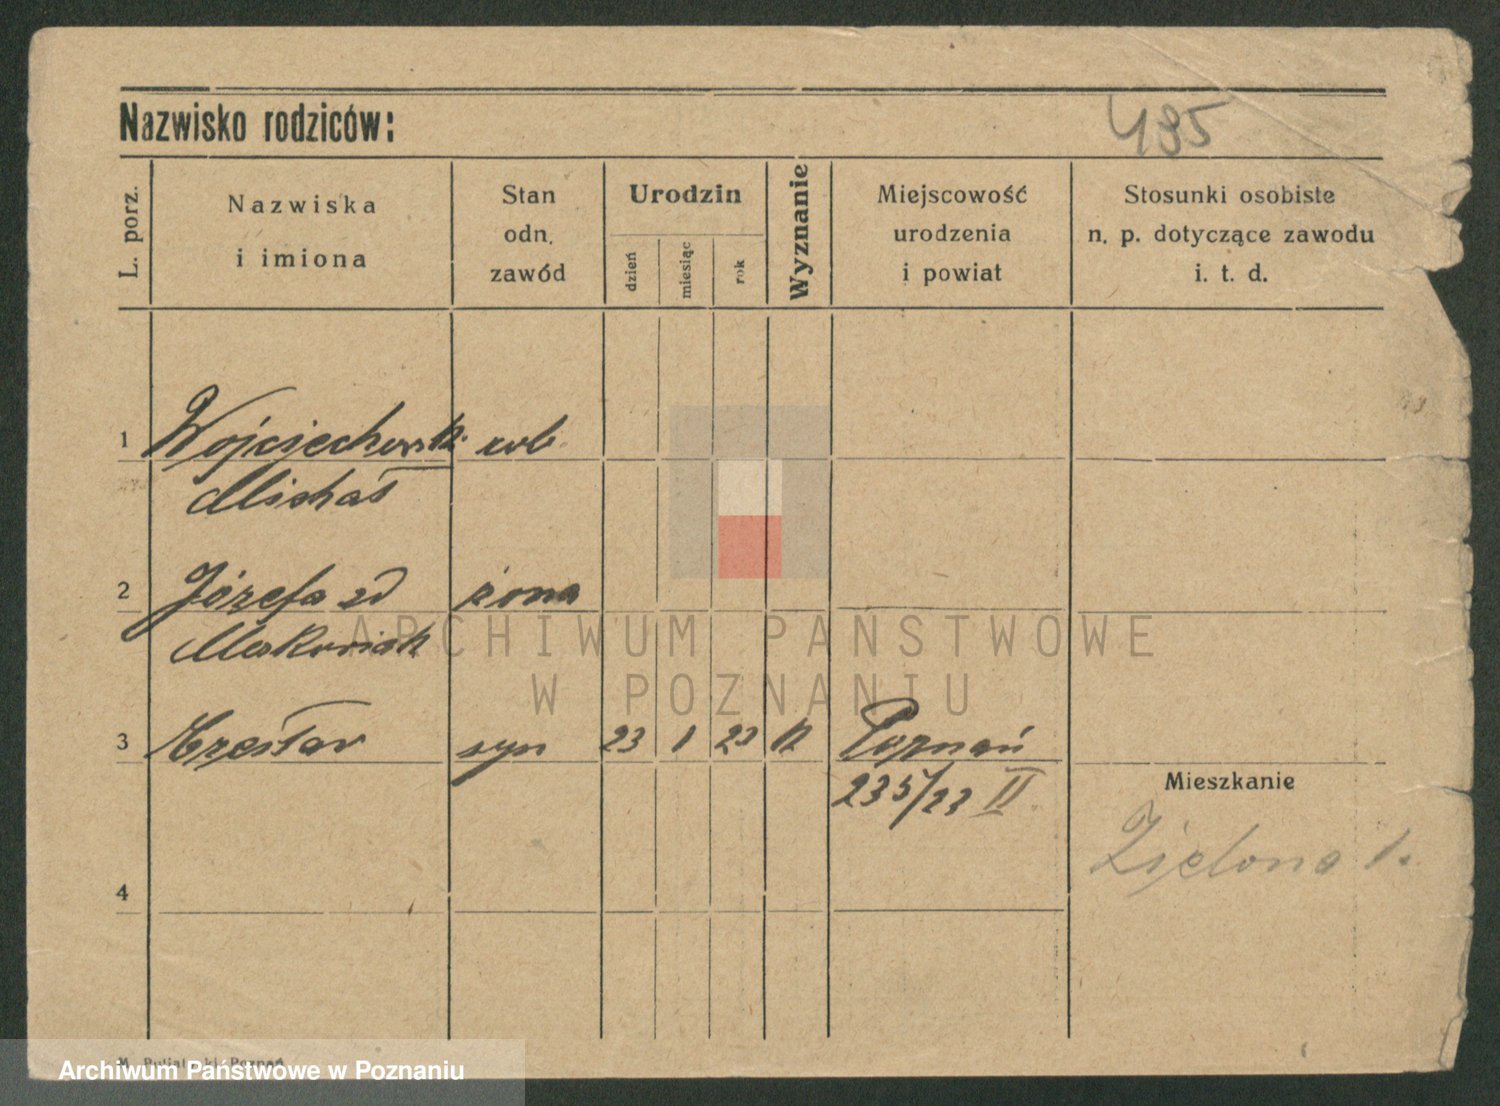 Nazwisko rodziców:
495
L. porz.
Nazwiska
i imiona
Stan
odn.
zawód
Urodzin
dzień
miesiąc
rok
Wyznanie
Miejscowość
urodzenia
i powiat
Stosunki osobiste
n. p. dotyczące zawodu
i. t. d.
1 Wojciechowski rob.
Michał
2 Józefa zd żona
ARCHIWUM PAŃSTWOWE
W POZNANIU
3 Czesław syn 23 1 23 k Poznań
235/23 II
Mieszkanie
Zielona 1.
4
Archiwum Państwowe w Poznaniu